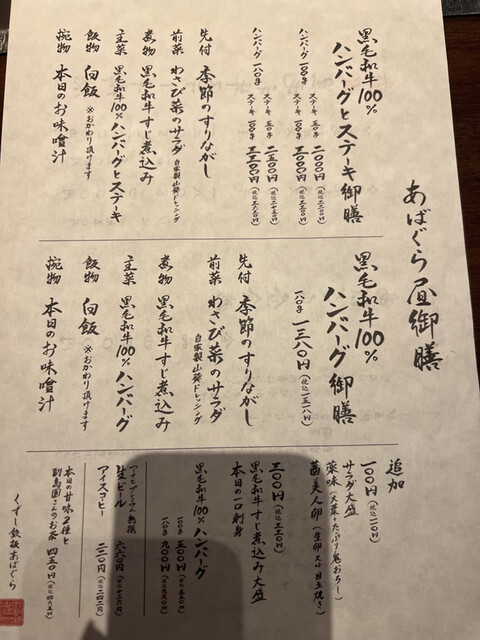 あばぐら昼御膳
黒毛和牛100%
ハンバーグとステーキ御膳
ハンバーグ 一〇〇g ステーキ 五〇g 二〇〇〇円(税込二二〇〇円)
ステーキ 一〇〇g
ハンバーグ 一八〇g ステーキ 五〇g 二五〇〇円(税込二七五〇円)
ステーキ 一〇〇g
先付 季節のすりながし
前菜 わさび菜のサラダ 自家製山葵ドレッシング
煮物 黒毛和牛すじ煮込み
主菜 黒毛和牛100%ハンバーグとステーキ
飯物 白飯 ※おかわり頂けます
椀物 本日のお味噌汁
黒毛和牛100%
ハンバーグ御膳
一八〇g 一三八〇円(税込一五一八円)
先付 季節のすりながし
前菜 わさび菜のサラダ
自家製山葵ドレッシング
煮物 黒毛和牛すじ煮込み
主菜 黒毛和牛100%ハンバーグ
飯物 白飯 ※おかわり頂けます
椀物 本日のお味噌汁
追加
一〇〇円(税込一一〇円)
サラダ大盛
薬味(大葉たっぷり鬼おろし)
茜美人卵(生卵又は目玉焼き)
三〇〇円(税込三三〇円)
黒毛和牛すじ煮込み大盛
本日の一口刺身
黒毛和牛100%ハンバーグ
一〇〇g 五〇〇円
一八〇g 九〇〇円(税込九九〇円)
生ビール
アイスコーヒー 二二〇円(税込二四二円)
本日の甘味2種と
四五〇円
くずし鉄板あばぐら